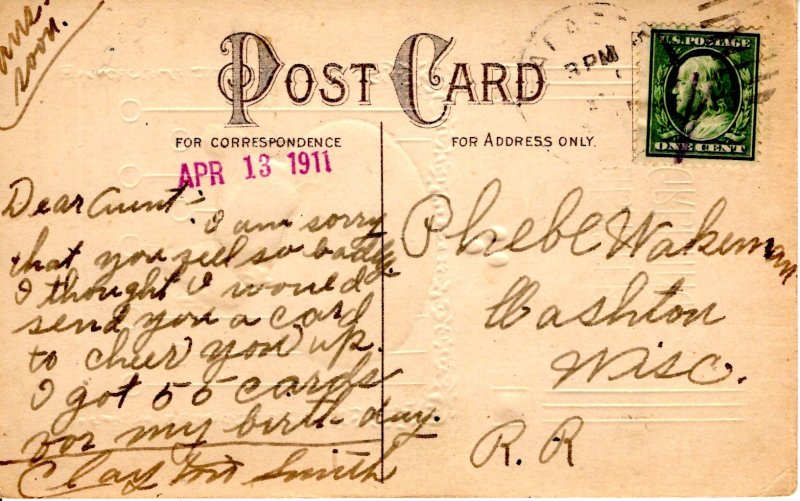 soon.
POST CARD
3 PM
U.S. POSTAGE
ONE CENT
FOR CORRESPONDENCE
FOR ADDRESS ONLY.
APR 13 1911
Dear Aunt:
I am sorry
that you feel so badly.
I thought I would
send you a card
to cheer you up.
I got 55 cards
for my birth day.
Clayton Smith
Phebe Wakeman
Cashton
Wisc.
R. R